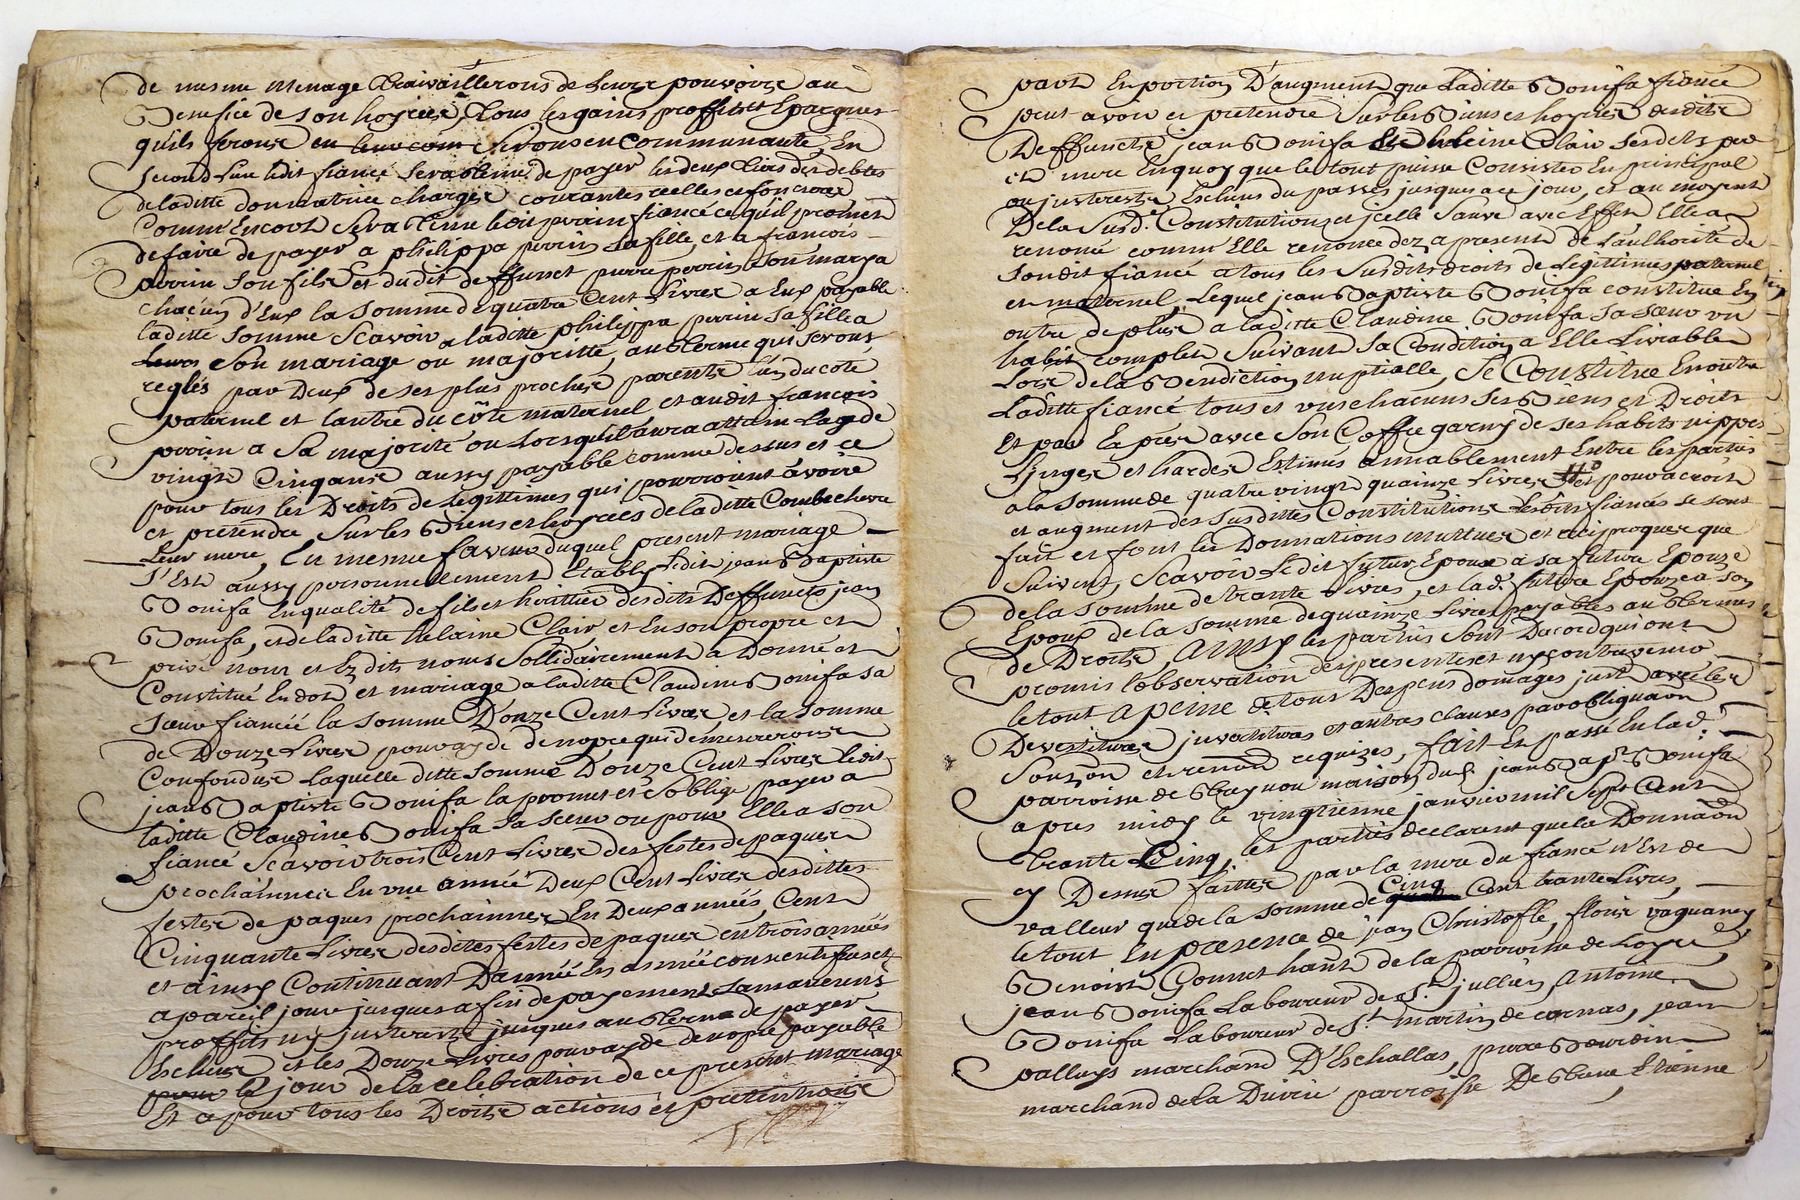 de mesme menage travailleront de leurs pouvoirs au
Benefice de son hoyries, tous les gains proffits et Epargnes
qu'ils feront en leur com seront en communauté, En
second lieu ledit fiancé sera tenu de payer les deux tiers des debtes
de laditte donnatrice charges courantes reelles et foncieres
Comm' Encort sera tenu ledit perrin fiancé ce qu'il promet
de faire de payer a philippa perrin sa fille, et a francois
perrin son fils et dudit deffunct pierre perrin son mary a
chacun d'Eux la somme de quatre Cent Livres a Eux payable
laditte somme scavoir a laditte philippa perrin sa fille a
Leurs son mariage ou majoritté, au terme qui seront
reglés par deux de ses plus proches parents l'un du coté
paternel et l'autre du côté maternel et audit francois
perrin a sa majorité ou Lorsquil aura attain Lage de
vingt Cinq ans aussy payable comme dessus et ce
pour tous les Droits de Legittimes qui pourroient avoir
et pretendre sur les Biens et hoyries de laditte Combechevre
Leur mere, En mesme faveur duquel present mariage
s'Est aussy personnellement Etably ledit jean Baptiste
Bonifa En qualité de fils et heritier desdits Deffuncts jean
Bonifa, et de laditte helaine Clair et En son propre et
privé nom et Ezdits noms Sollidairement a Donné et
Constitué En dot et mariage a laditte Claudine Bonifa sa
sœur fiancéé la somme D'onze Cent Livres et la somme
de Douze Livres pour ayde de nopce qui demeureront
Confondus Laquelle ditte somme Donze Cent Livres ledit
jean Baptiste Bonifa la promet et s'oblige payer a
laditte Claudine Bonifa sa sœur ou pour Elle a son
fiancé scavoir trois Cent Livres des festes de paques
prochainnes En une année Deux Cent Livres desdittes
festes de paques prochainnes En Deux années, Cent
Cinquante Livres desdites festes de paques en trois années
et ainsy Continuant D'année En année consecutifves et
a pareil jour jusques a fin de payement sans aucuns
proffits ny jnterests jusques au terme de payer
Escheus et les Douze Livres pour ayde de nopce payable
pour le jour de la celebration de ce present mariage
Et ce pour tous les Droits actions et pretentions
part En portion D'augment que Laditte Bonifa fiancé
peut avoir et pretendre sur les Biens et hoyries desdits
Deffuncts jean Bonifa et helaine Clair ses dets pere
et mere En quoy que le tout puisse Consister En principal
ou jnterests Escheus du passés jusques a ce jour, et au moyent
De la susd.e Constitution et jcelle Sauve avec Effet Elle a
renoncé comm' Elle renonce dez a presente de L'authorité de
sondit fiancé a tous les susdits droits de Legittimes paternel
et maternel, Lequel jean Baptiste Bonifa constitue En
outre de plus a laditte Claudine Bonifa sa sœur un
habit complet suivant sa Condition a Elle Livrable
Lors de la Benediction nuptialle, Se Constitue En outre
Laditte fiancé tous et uns chacuns ses Biens et Droits
Et par Exprez avec son Coffre garny de ses habits nippes
Linges et hardes Estimés amiablement Entre les parties
a la somme de quatre vingt quainze Livres et pour acroit
et augment des susdittes Constitutions Lesdits fiancés se sont
fait et font les Donnations mutues et reciproques que
suivent, Scavoir Ledit futur Epoux a sa future Epouze
de la somme de trante Livres, et lad. future Epouze a son
Epoux de la somme de quainze Livres payables au termes
de Droits, Ainsy les parties sont Dacord qui ont
promis l'observation des presentes et n'y contrevenir
le tout a peine de tous Despens domages justes avec les
Devestitures jnvestitures et autres clauses par obliguaon
Soubzon et renon requizes, fait Et passé En lad.
parroisse de maison dud. jean Bap.te Bonifa
apres midy le vingtienne janvier mil Sept Cent
trante Cinq, les parties declarent que la Donnaon
cy Dessus faitte par la mere du fiancé n'Est de
valleur que de la somme de Cinq Cent trante Livres,
le tout En presence de jean Christofle, fleurie vaguaney
Benoist Gonnet habit de la parroisse de Loyre,
jean Bonifa Laboureur de St jullien, Antoine
Bonifa Laboureur de St martin de cornas, jean
palluys marchand D'Eschallas, pierre
marchand de la Diviri parroisse De Etienne